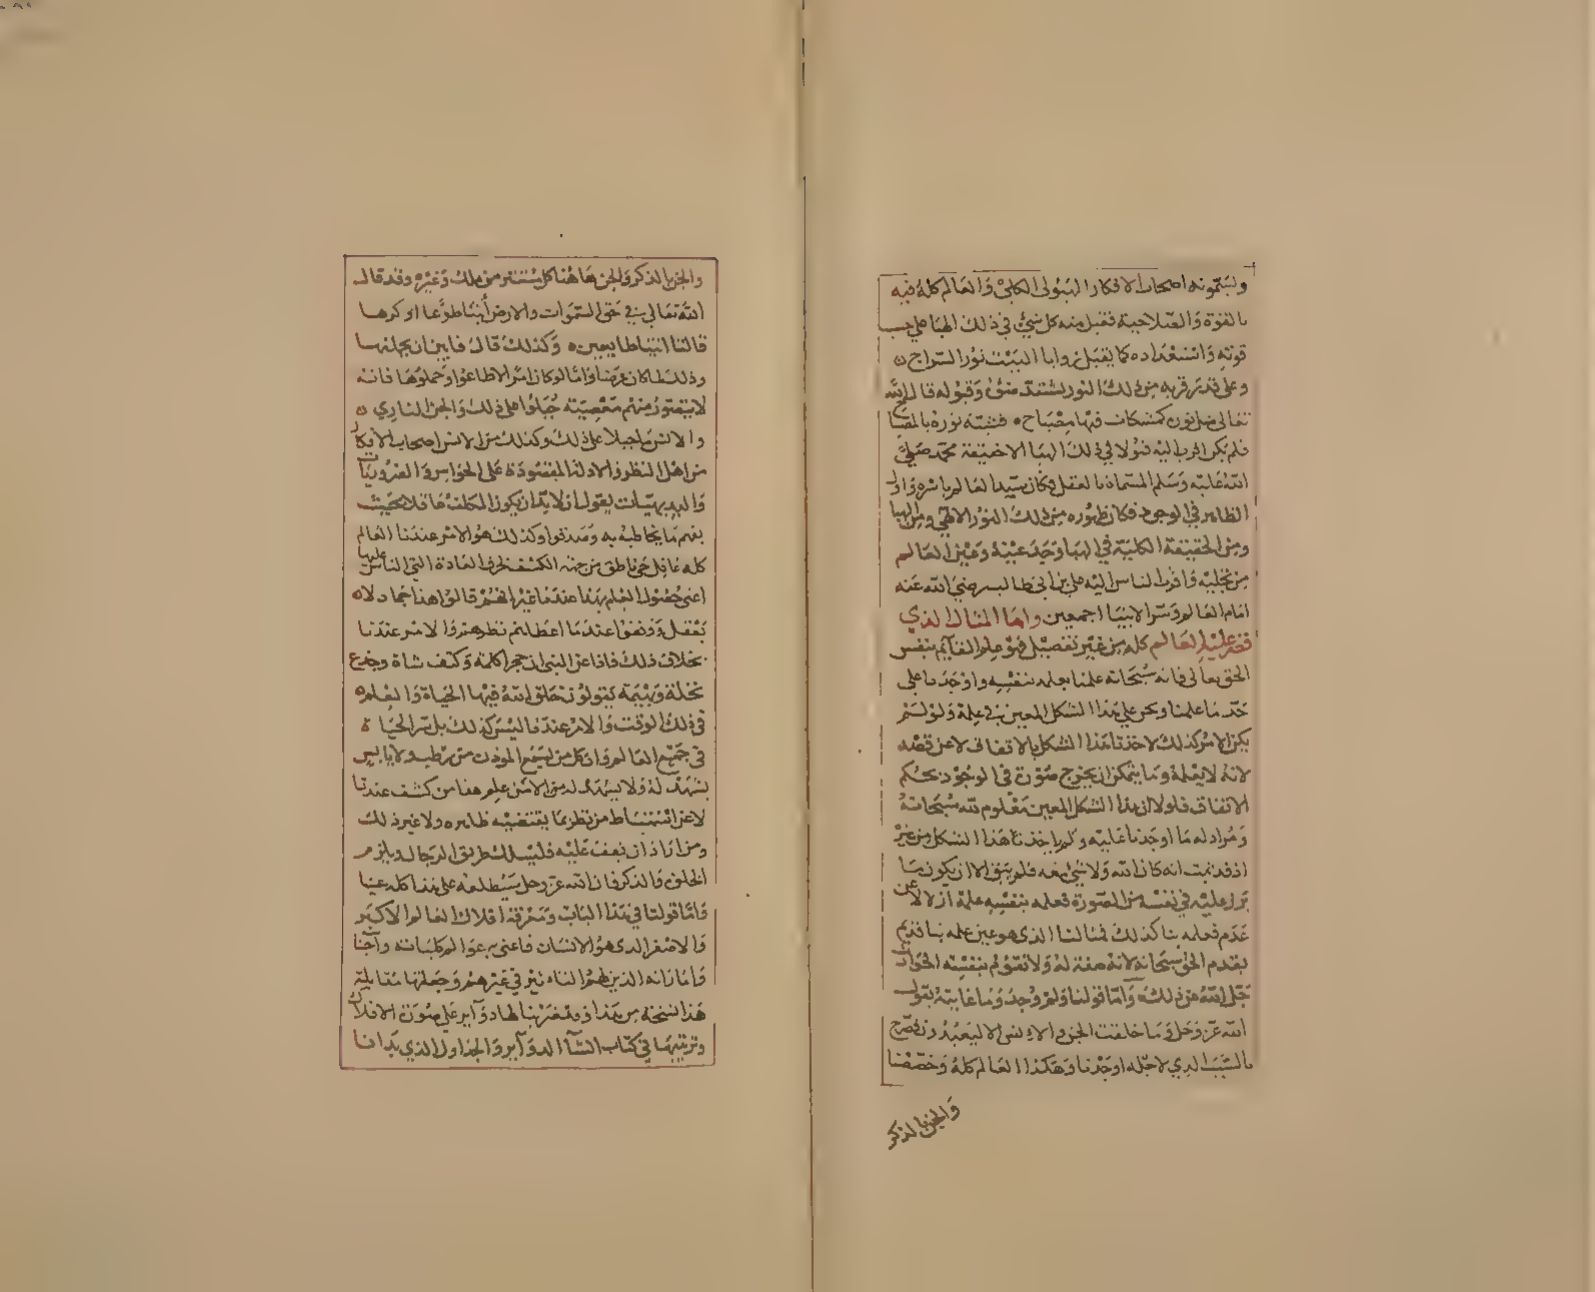 ويسمونه اصحاب الافكار الهيولى الكلي والعالم كله فيه
بالقوة والصلاحية فقبل منه كل شيء في ذلك الهبا على حسب
قوته واستعداده كما يقبل زوايا البيت نور السراج
وعلى قدر قربه من ذلك النور يشتد ضوه وقبوله قال الله
تعالى مثل نوره كمشكاة فيها مصباح فشبه نوره بالمصبا
فلم يكن اقرب اليه قبولا في ذلك الهبا الا حقيقة محمد صلى
الله عليه وسلم المسماة بالعقل فكان سيد العالم باسره واول
الظاهر في الوجود فكان ظهوره من ذلك النور الالهي ومن الهبا
ومن الحقيقة الكلية في الهبا وجد عينه وعين العالم
من تجليه واقرب الناس اليه علي بن ابي طالب رضي الله عنه
امام العالم وسر الانبيا اجمعين واما المثال الذي
عليه العالم كله من غير تفصيل فهو علم القايم بنفس
الحق تعالى فانه سبحانه علمنا بعلمه بنفسه واوجدنا على
حد ما علمنا ونحن على هذا الشكل المعين في علمه ولو لم
يكن الامر كذلك لاخذنا هذا الشكل بالاتفاق لا عن قصد
لانه لا يعلمه وما يتمكن ان يخرج صورة في الوجود بحكم
الاتفاق فلولا ان هذا الشكل المعين معلوم لله سبحانه
ومراد له ما اوجدنا عليه ولم ياخذ هذا الشكل من غير
اذ قد ثبت انه كان الله ولا شي معه فلم يبق الا ان يكون ما
برز عليه في نفسه من الصورة فعلمه بنفسه علمه ازلا لا عن
عدم فعلمه بنا كذلك فمثالنا الذي هو عين علمه بنا قديم
بقدم الحق سبحانه لانه صفة له ولا تقوم بنفسه الحوادث
جل الله عن ذلك واما قولنا ولم وجد وما غايته بقول
الله عز وجل وما خلقت الجن والانس الا ليعبدون فصرح
بالسبب الذي لاجله اوجدنا وهكذا العالم كله وخصصنا
والجن بالذكر
والجن بالذكر والجن هاهنا كل مستتر من ملك وغيره وقد قال
الله تعالى في حق السموات والارض ائتيا طوعا او كرها
قالتا اتينا طايعين وكذلك قال فابين ان يحملنها
وذلك لما كان عرضا واما لو كان امرا لاطاعوا وحملوها فانه
لا يتصور منهم معصيته جبلوا على ذلك والجن الناري
والانس ما جبلا على ذلك وكذلك من الانس اصحاب الافكار
من اهل النظر والادلة المقصورة على الحواس والضروريات
والبديهيات يقول لا بد ان يكون المكلف عاقلا بحيث
يفهم ما يخاطب به وصدقوا وكذلك هو الامر عندنا العالم
كله عاقل حي ناطق من جهة الكشف بخرق العادة التي الناس عليها
اعني حصول العلم بهذا عندنا غير انهم قالوا هذا جماد لا
يعقل ووقفوا عند ما اعطاهم نظرهم والامر عندنا
بخلاف ذلك فاذا عن النبي ان حجرا كلمه وكتف شاة وجذع
نخلة وبهيمة يقولون خلق الله فيها الحياة والعلم
في ذلك الوقت والامر عندنا ليس كذلك بل سر الحياة
في جميع العالم وان كل من يسمع الموذن من رطب ولا يابس
يشهد له ولا يشهد الا من علم هذا من كشف عندنا
لا عن استنباط من نظر بما يقتضيه ظاهره ولا غير ذلك
ومن اراد ان يقف عليه فليسلك طريق الرجال ويلزم
الخلق والذكر فان الله عز وجل سيطلعه على هذا كله عينا
واما قولنا في هذا الباب ومعرفة افلاك العالم الاكبر
والاصغر الذي هو الانسان فاعني به عوالم كلياته واجنا
وامارانه الذين لهم التاثير في غيرهم وجعلتها متقابلة
هذا نسخة من هذا وقد ضربنا لها دواير على صورة الافلاك
وترتيبها في كتاب انشا الدواير والجداول الذي بدانا